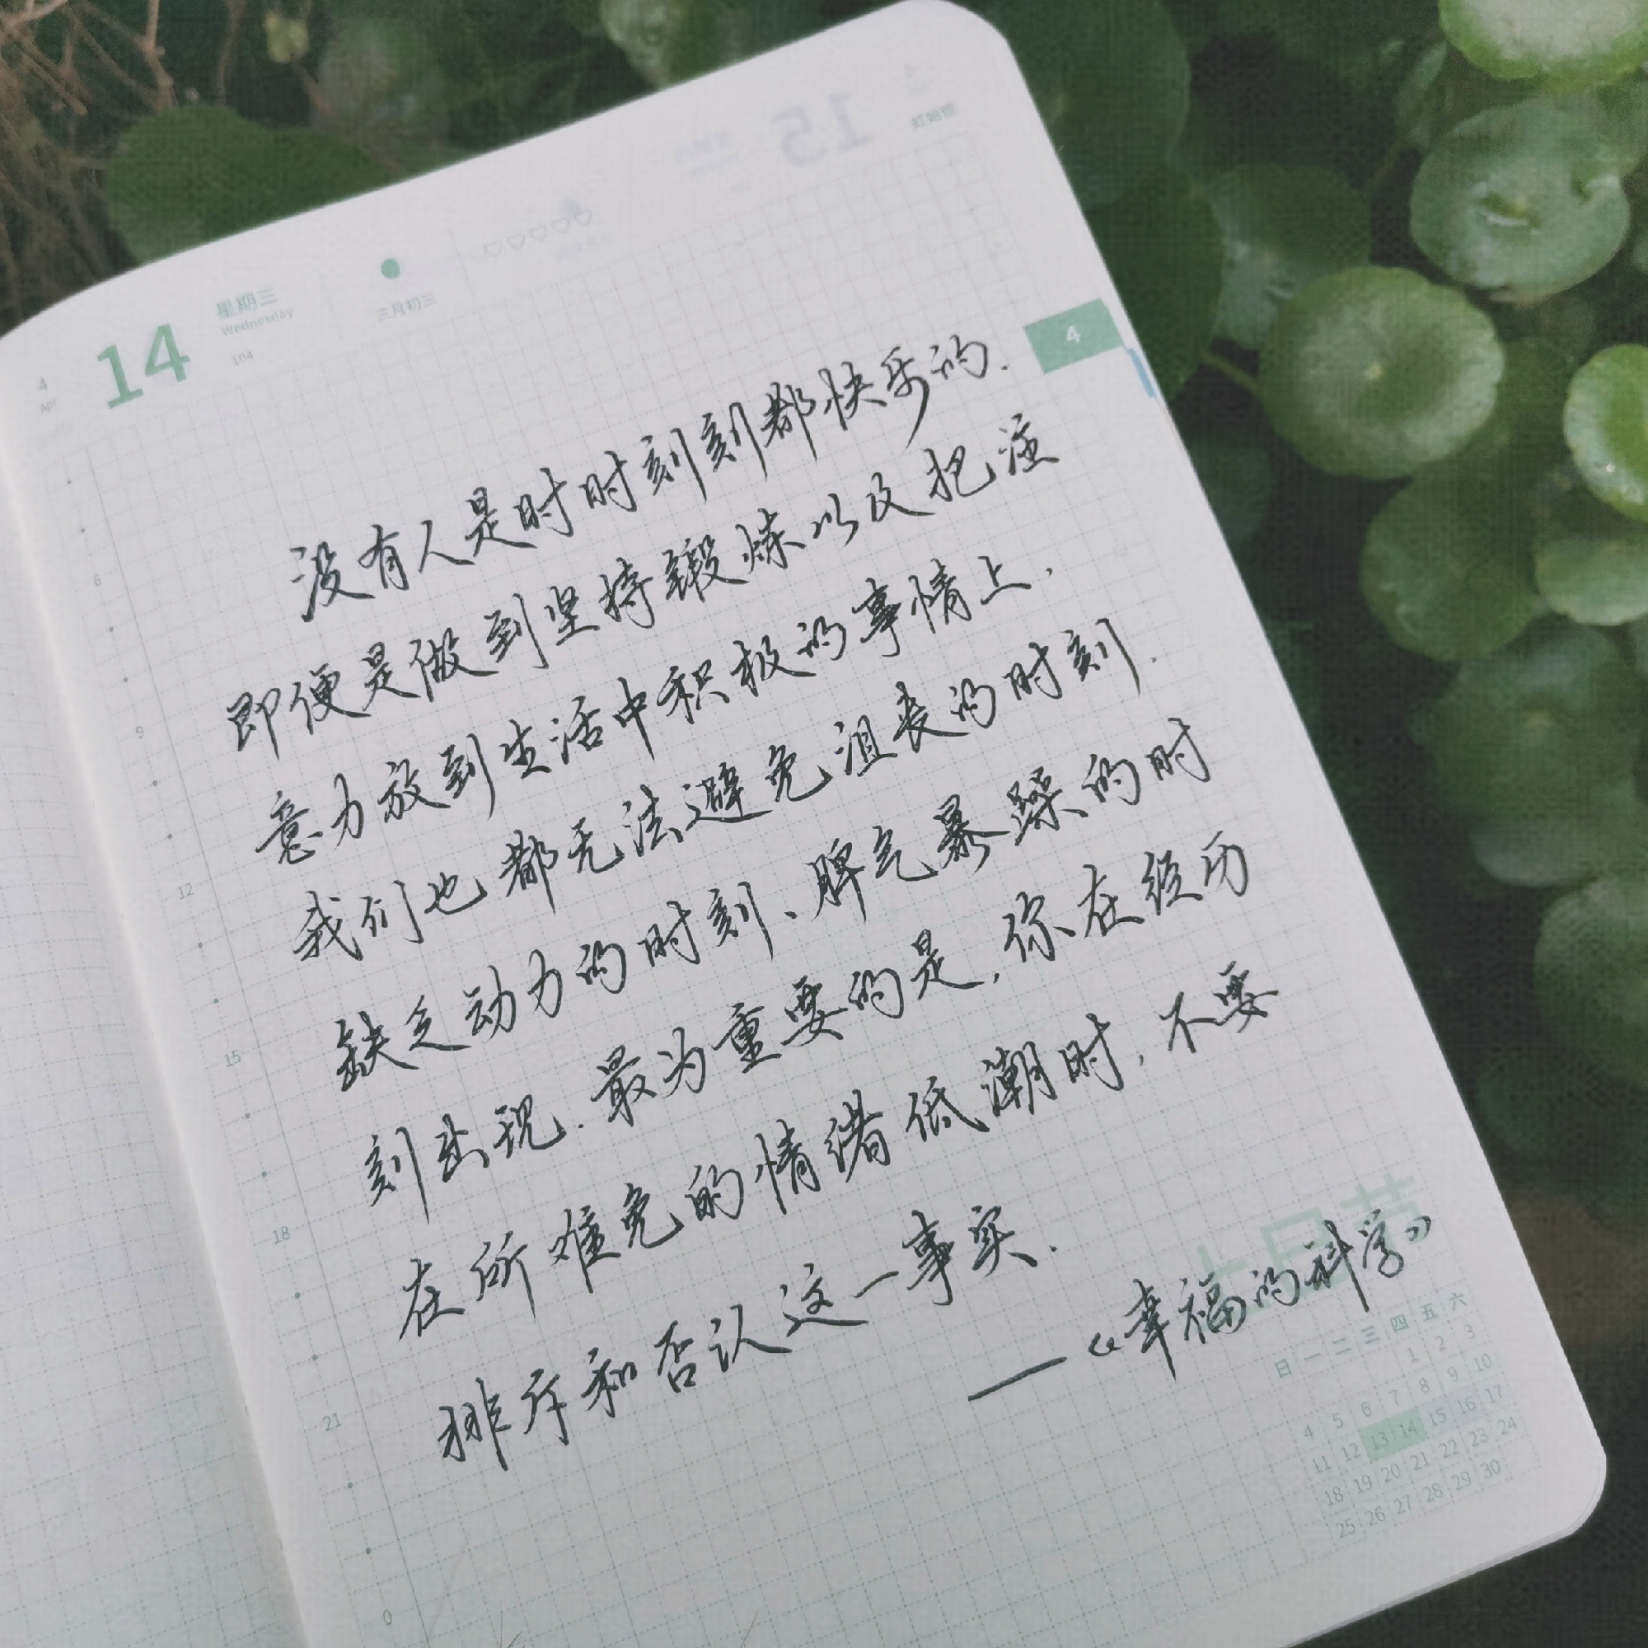 15
4
14
星期三
Wednesday
104
三月初三
4
没有人是时时刻刻都快乐的.
即便是做到坚持锻炼以及把注
意力放到生活中积极的事情上.
我们也都无法避免沮丧的时刻.
缺乏动力的时刻、脾气暴躁的时
刻出现.最为重要的是,你在经历
在所难免的情绪低潮时,不要
排斥和否认这一事实.
——《幸福的科学》
6
9
12
15
18
21
0
日 一 二 三 四 五 六
1 2 3
4 5 6 7 8 9 10
11 12 13 14 15 16 17
18 19 20 21 22 23 24
25 26 27 28 29 30